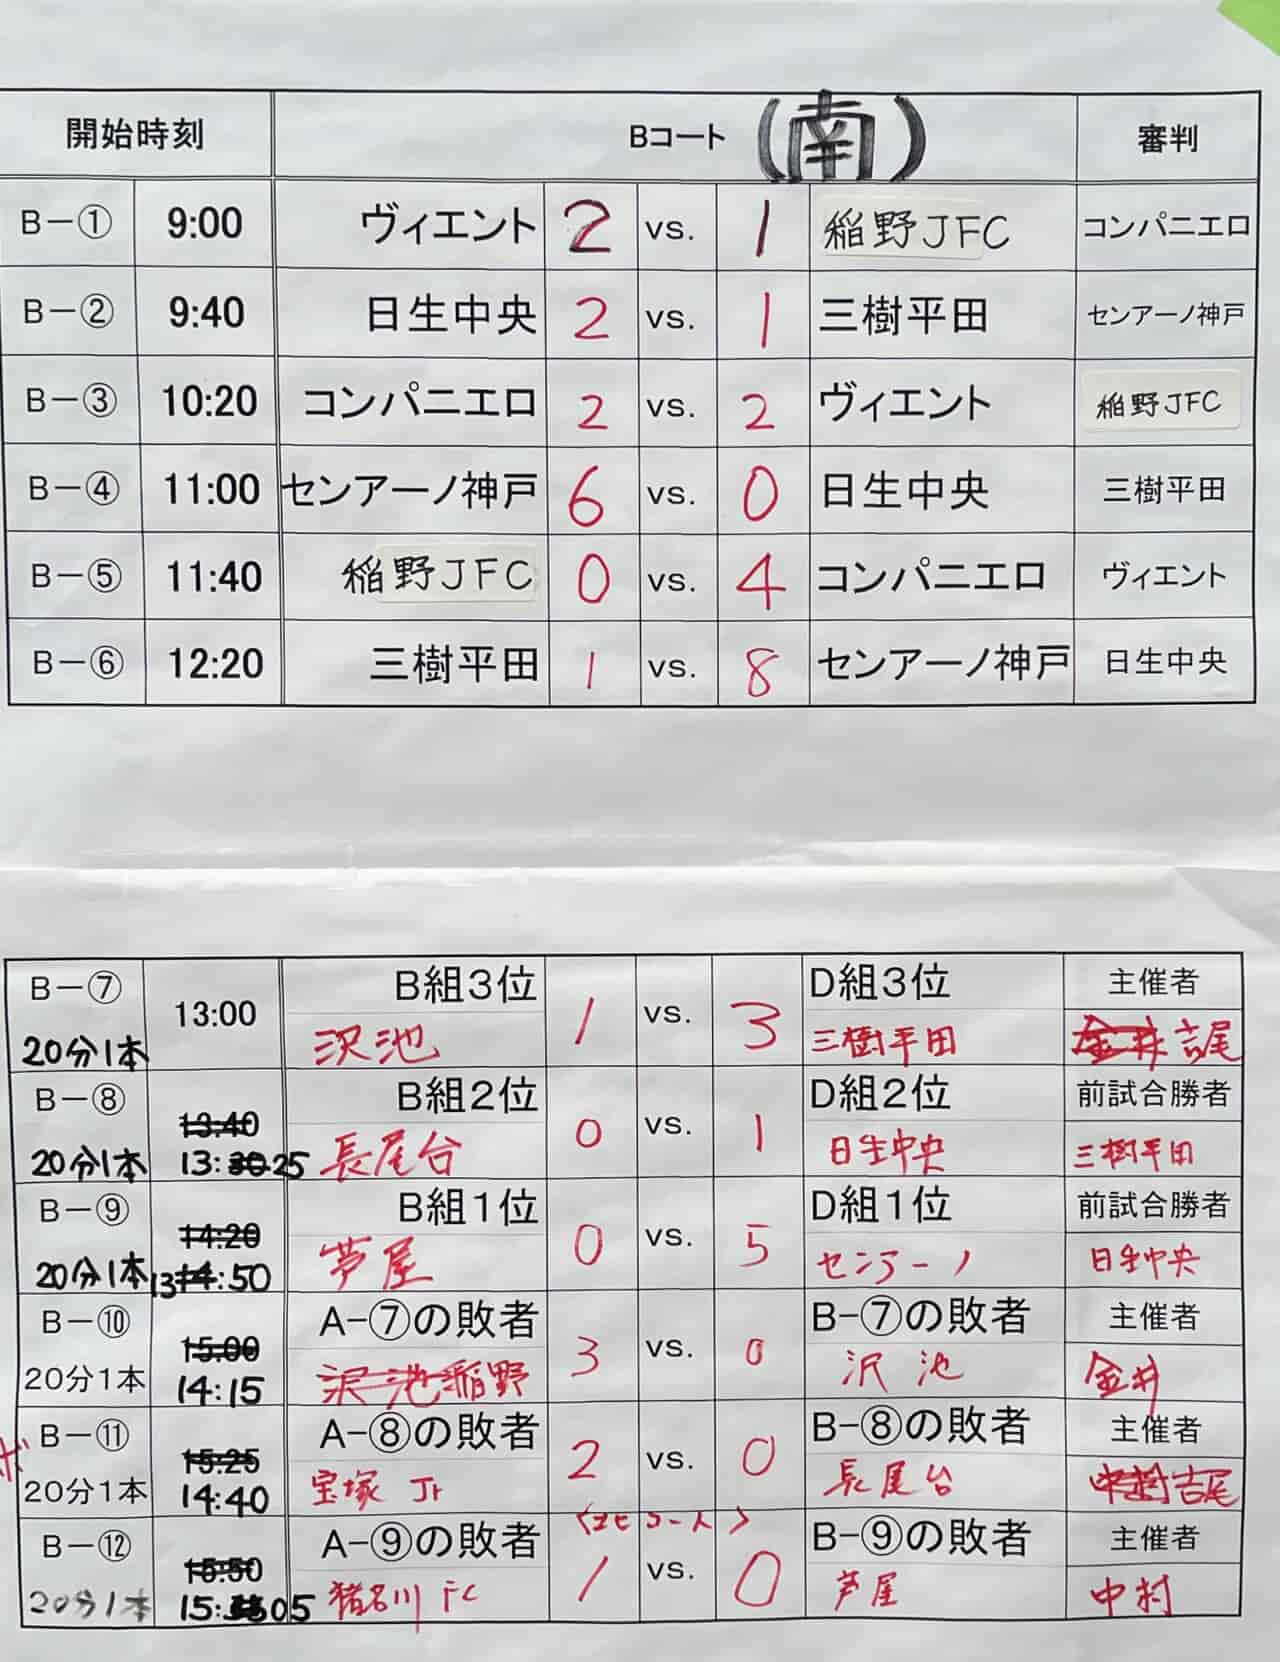 開始時刻 Bコート (南) 審判
B－① 9:00 ヴィエント 2 vs. 1 稲野JFC コンパニエロ
B－② 9:40 日生中央 2 vs. 1 三樹平田 センアーノ神戸
B－③ 10:20 コンパニエロ 2 vs. 2 ヴィエント 稲野JFC
B－④ 11:00 センアーノ神戸 6 vs. 0 日生中央 三樹平田
B－⑤ 11:40 稲野JFC 0 vs. 4 コンパニエロ ヴィエント
B－⑥ 12:20 三樹平田 1 vs. 8 センアーノ神戸 日生中央
B－⑦ 13:00 B組3位 1 vs. 3 D組3位 主催者
20分1本 沢池 三樹平田 金井 吉尾
B－⑧ 13:40 B組2位 0 vs. 1 D組2位 前試合勝者
20分1本 13:30 25 長尾台 日生中央 三樹平田
B－⑨ 14:20 B組1位 0 vs. 5 D組1位 前試合勝者
20分1本 13 14:50 芦屋 センアーノ 日生中央
B－⑩ 15:00 A-⑦の敗者 3 vs. 0 B-⑦の敗者 主催者
20分1本 14:15 沢池 稲野 沢池 金井
B－⑪ 15:25 A-⑧の敗者 2 vs. 0 B-⑧の敗者 主催者
20分1本 14:40 宝塚 Jr 長尾台 中村 吉尾
B－⑫ 15:50 A-⑨の敗者 1 vs. 0 B-⑨の敗者 主催者
20分1本 15: 05 猪名川 FC 芦屋 中村